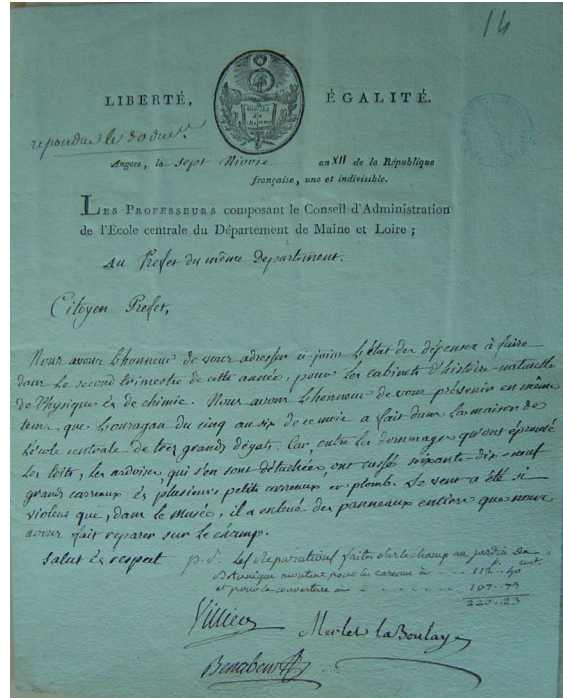 14
LIBERTÉ, ÉGALITÉ.
DROITS de l'Homme
repondre le 30
Angers, la sept Nivose an XII de la République
française, une et indivisible.
LES PROFESSEURS composant le Conseil d'Administration
de l'École centrale du Département de Maine et Loire ;
Au Prefet du même Departement.
Citoyen Prefet,
Nous avons l'honneur de vous adresser ci-joint l'état des dépenses à faire
dans le second trimestre de cette année, pour les cabinets d'histoire-naturelle
de Physique et de chimie. Nous avons l'honneur de vous prévenir en même
tems que l'ouragan du cinq au six de ce mois a fait dans la maison de
l'école centrale de tres grands dégats. Car, outre les dommages qu'ont éprouvé
les toits, les ardoises, qui s'en sont détachées ont cassé soixante-dix-neuf
grands carreaux et plusieurs petits carreaux en plomb. Le vent a été si
violent que, dans le musée, il a enlevé des panneaux entiers que nous
avons fait reparer sur le champ.
Salut et respect
p. s. Les réparations faites sur le champ au jardin de
Botanique montent pour les carreaux à 112 50
et pour la couverture à 107 73
220 23
Villiers
Merlet la Boulaye
Benaben